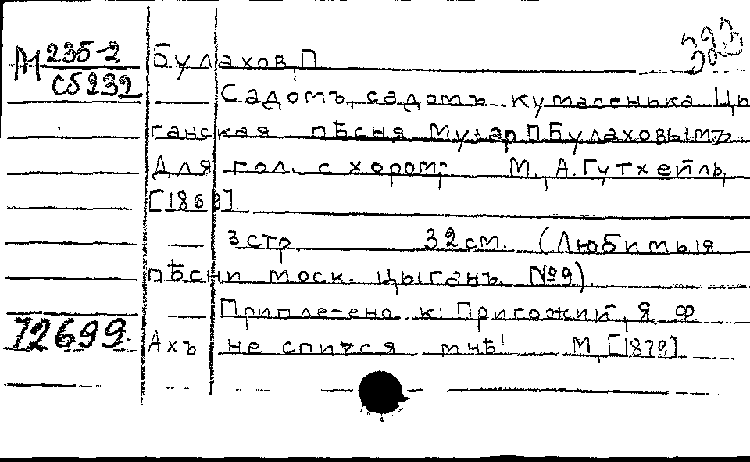 323
М 235-2
Сб 232
Булахов, П.
Садомъ, садомъ кумасенька. Цы-
ганская пѣсня. Муз. арр. П. Булаховымъ
Для гол. с хором. М., А. Гутхейль,
[1868]
3 стр. 32 см. (Любимыя
пѣсни моск. цыганъ. №9).
Приплетено к: Пригожий, Я. Ф.
Ахъ не спится мнѣ! М., [1878]
72699.